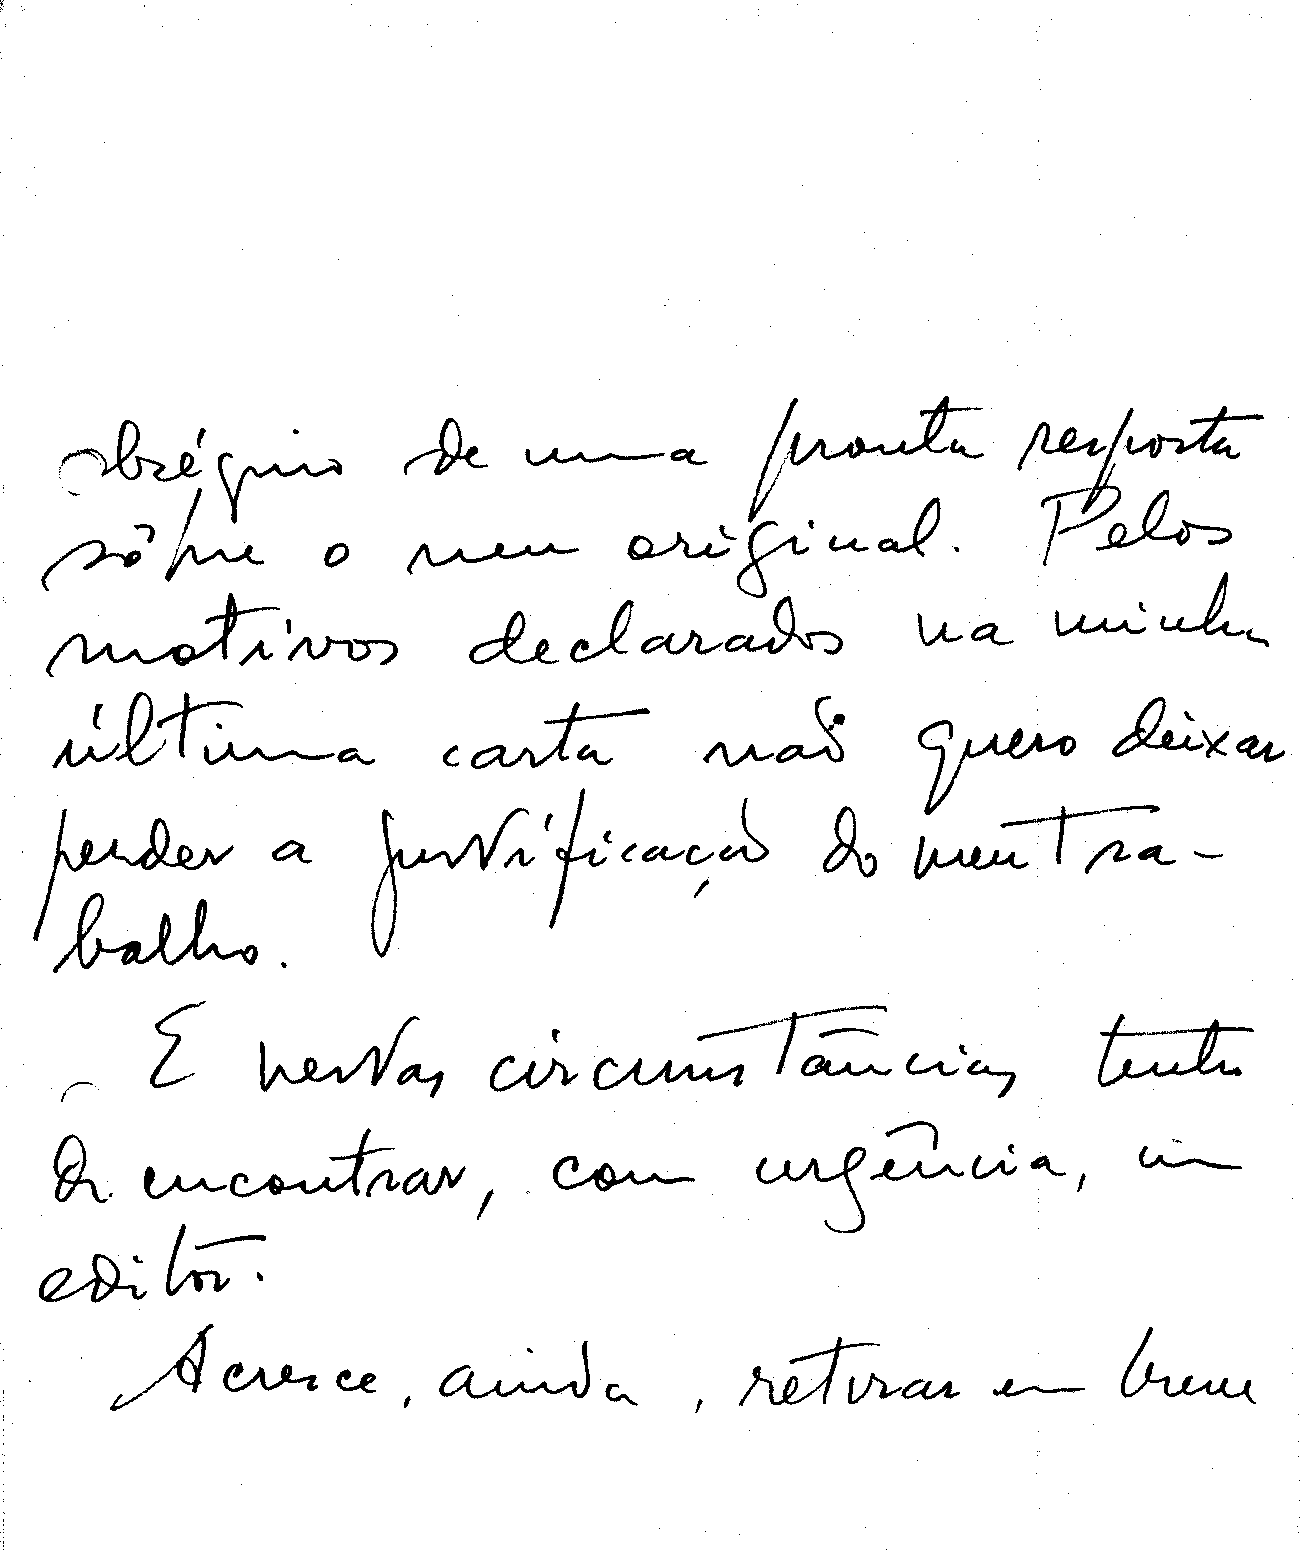 obséquio de uma pronta resposta
sôbre o meu original. Pelos
motivos declarados na minha
última carta não quero deixar
perder a justificação do meu tra-
balho.
E nestas circunstâncias tento
de encontrar, com urgência, um
editor.
Acresce, ainda, retirar em breve